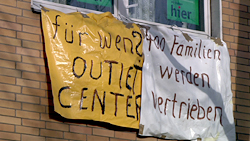 hier
für wen?
OUTLET
CENTER
400 Familien
werden
vertrieben